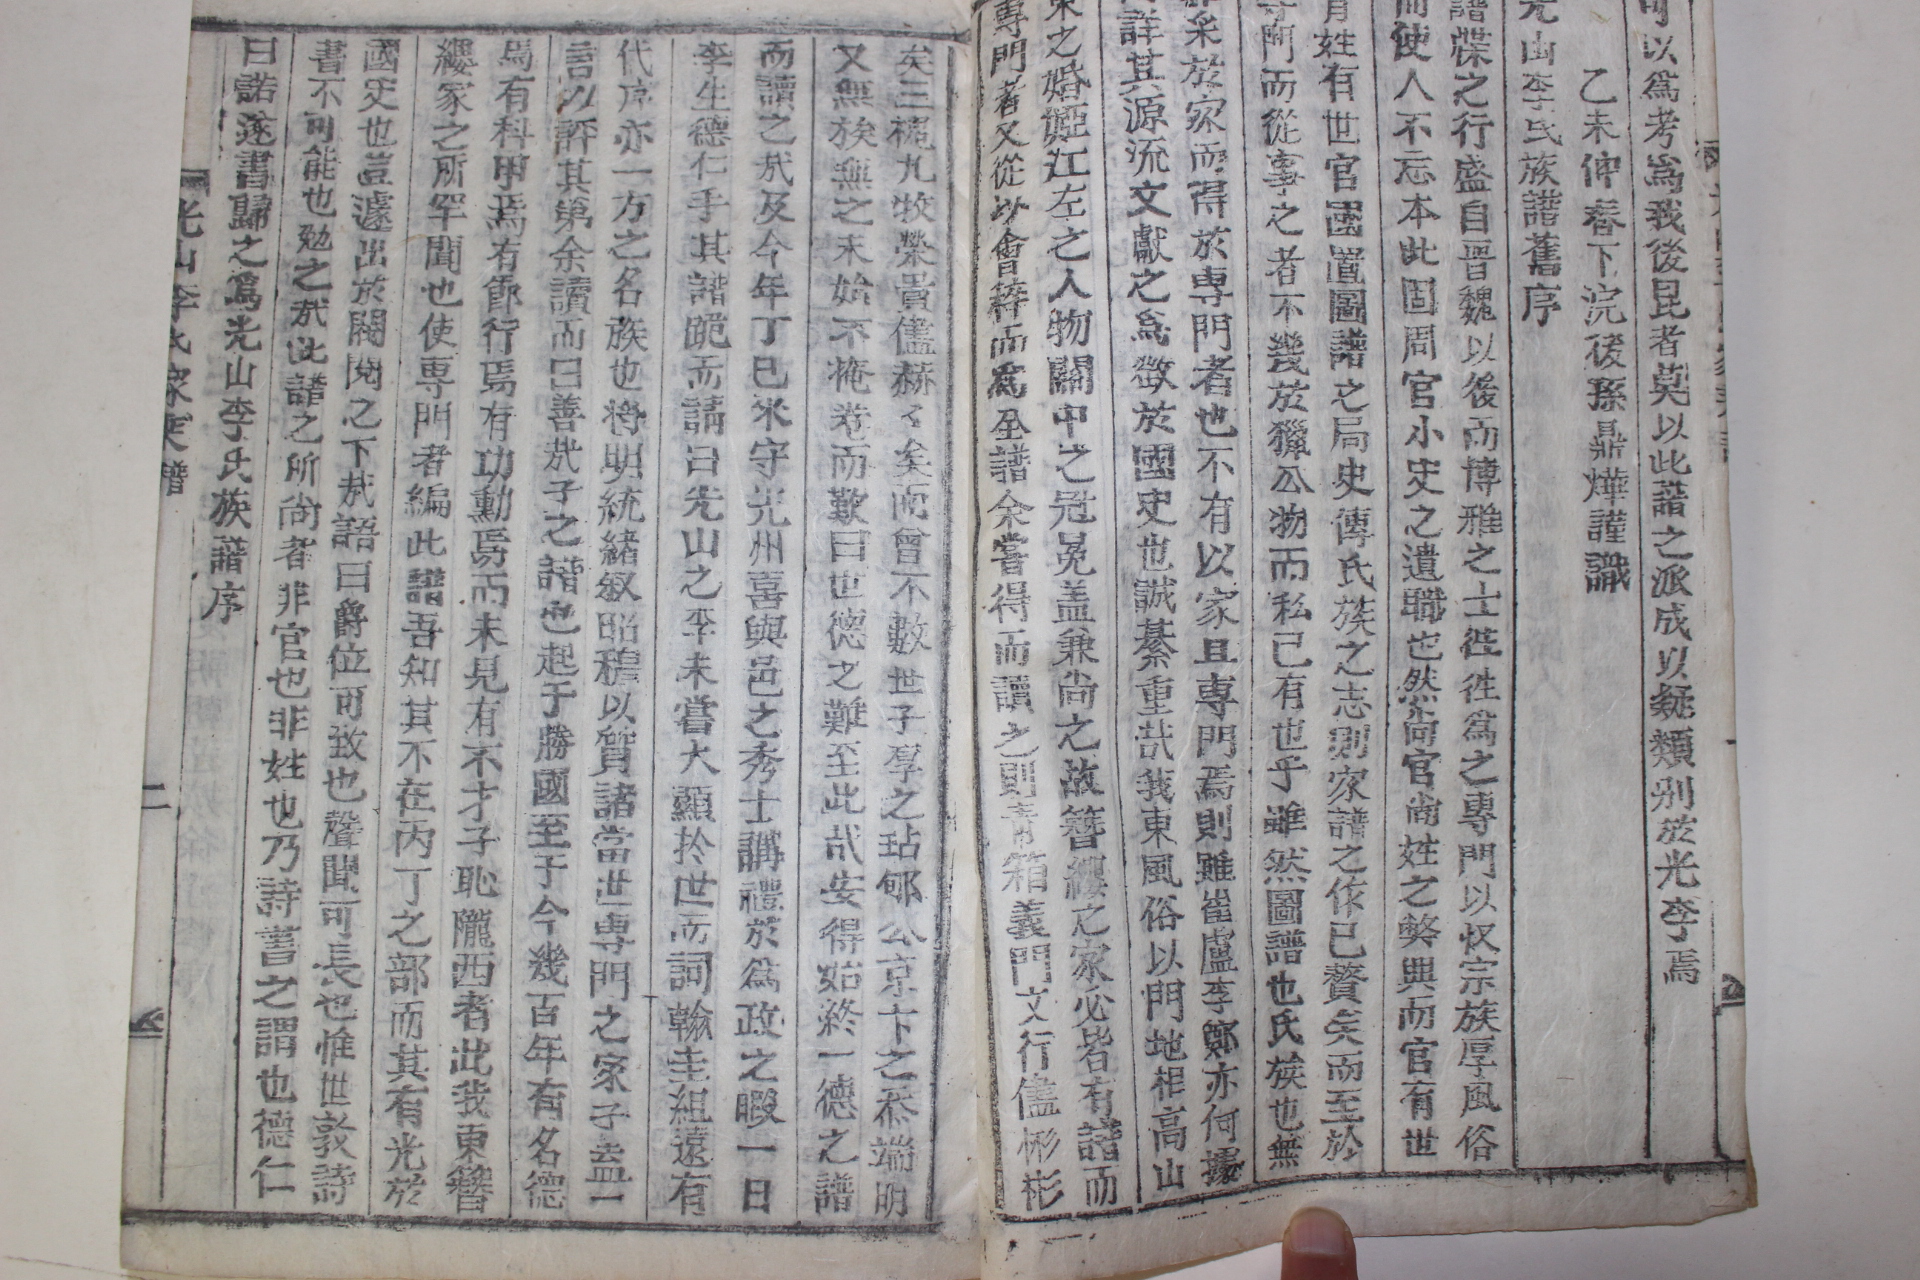 可以爲考爲我後昆者莫以此譜之派成以疑類别於光李焉
乙未仲春下浣後孫鼎燁謹識
光山李氏族譜舊序
譜牒之行盛自晋魏以後而博雅之士徃徃爲之專門以収宗族厚風俗
而使人不忘本此固周官小史之遺職也然尚官尚姓之弊興而官有世
胄姓有世官國置圖譜之局史傳氏族之志則家譜之作已贅矣而至於
専門而從事之者不幾於獵公物而私已有也乎雖然圖譜也氏族也無
非采於家而得於専門者也不有以家且専門焉則雖崔盧李鄭亦何據
詳其源流文獻之爲徵於國史也誠綦重哉我東風俗以門地相高山
東之婚姫江左之人物關中之冠冕盖兼尚之故簪纓之家必皆有譜而
専門者又從以會稡而爲全譜余嘗得而讀之則青箱義門文行儘彬彬
矣三槐九牧榮貴儘赫々矣而曾不數世子厚之玷郇公京卞之忝端明
又無族無之未始不掩卷而歎曰世德之難至此哉安得始終一德之譜
而讀之哉及今年丁巳來守光州喜與邑之秀士講禮於爲政之暇一日
李生德仁手其譜踵而請曰光山之李未嘗大顯於世而詞翰圭組遠有
代序亦一方之名族也將明統緒叙昭穆以質諸當世専門之家子盍一
言以評其第余讀而曰善哉子之譜也起于勝國至于今幾百年有名德
焉有科甲焉有節行焉有功勳焉而未見有不才子恥隴西者此我東簪
纓家之所罕聞也使専門者編此譜吾知其不在丙丁之部而其有光於
國史也豈遽出於閥閱之下哉語曰爵位可致也聲聞可長也惟世敦詩
書不可能也勉之哉此譜之所尚者非官也非姓也乃詩書之謂也德仁
曰諾遂書歸之爲光山李氏族譜序
光山李氏家乗譜
二